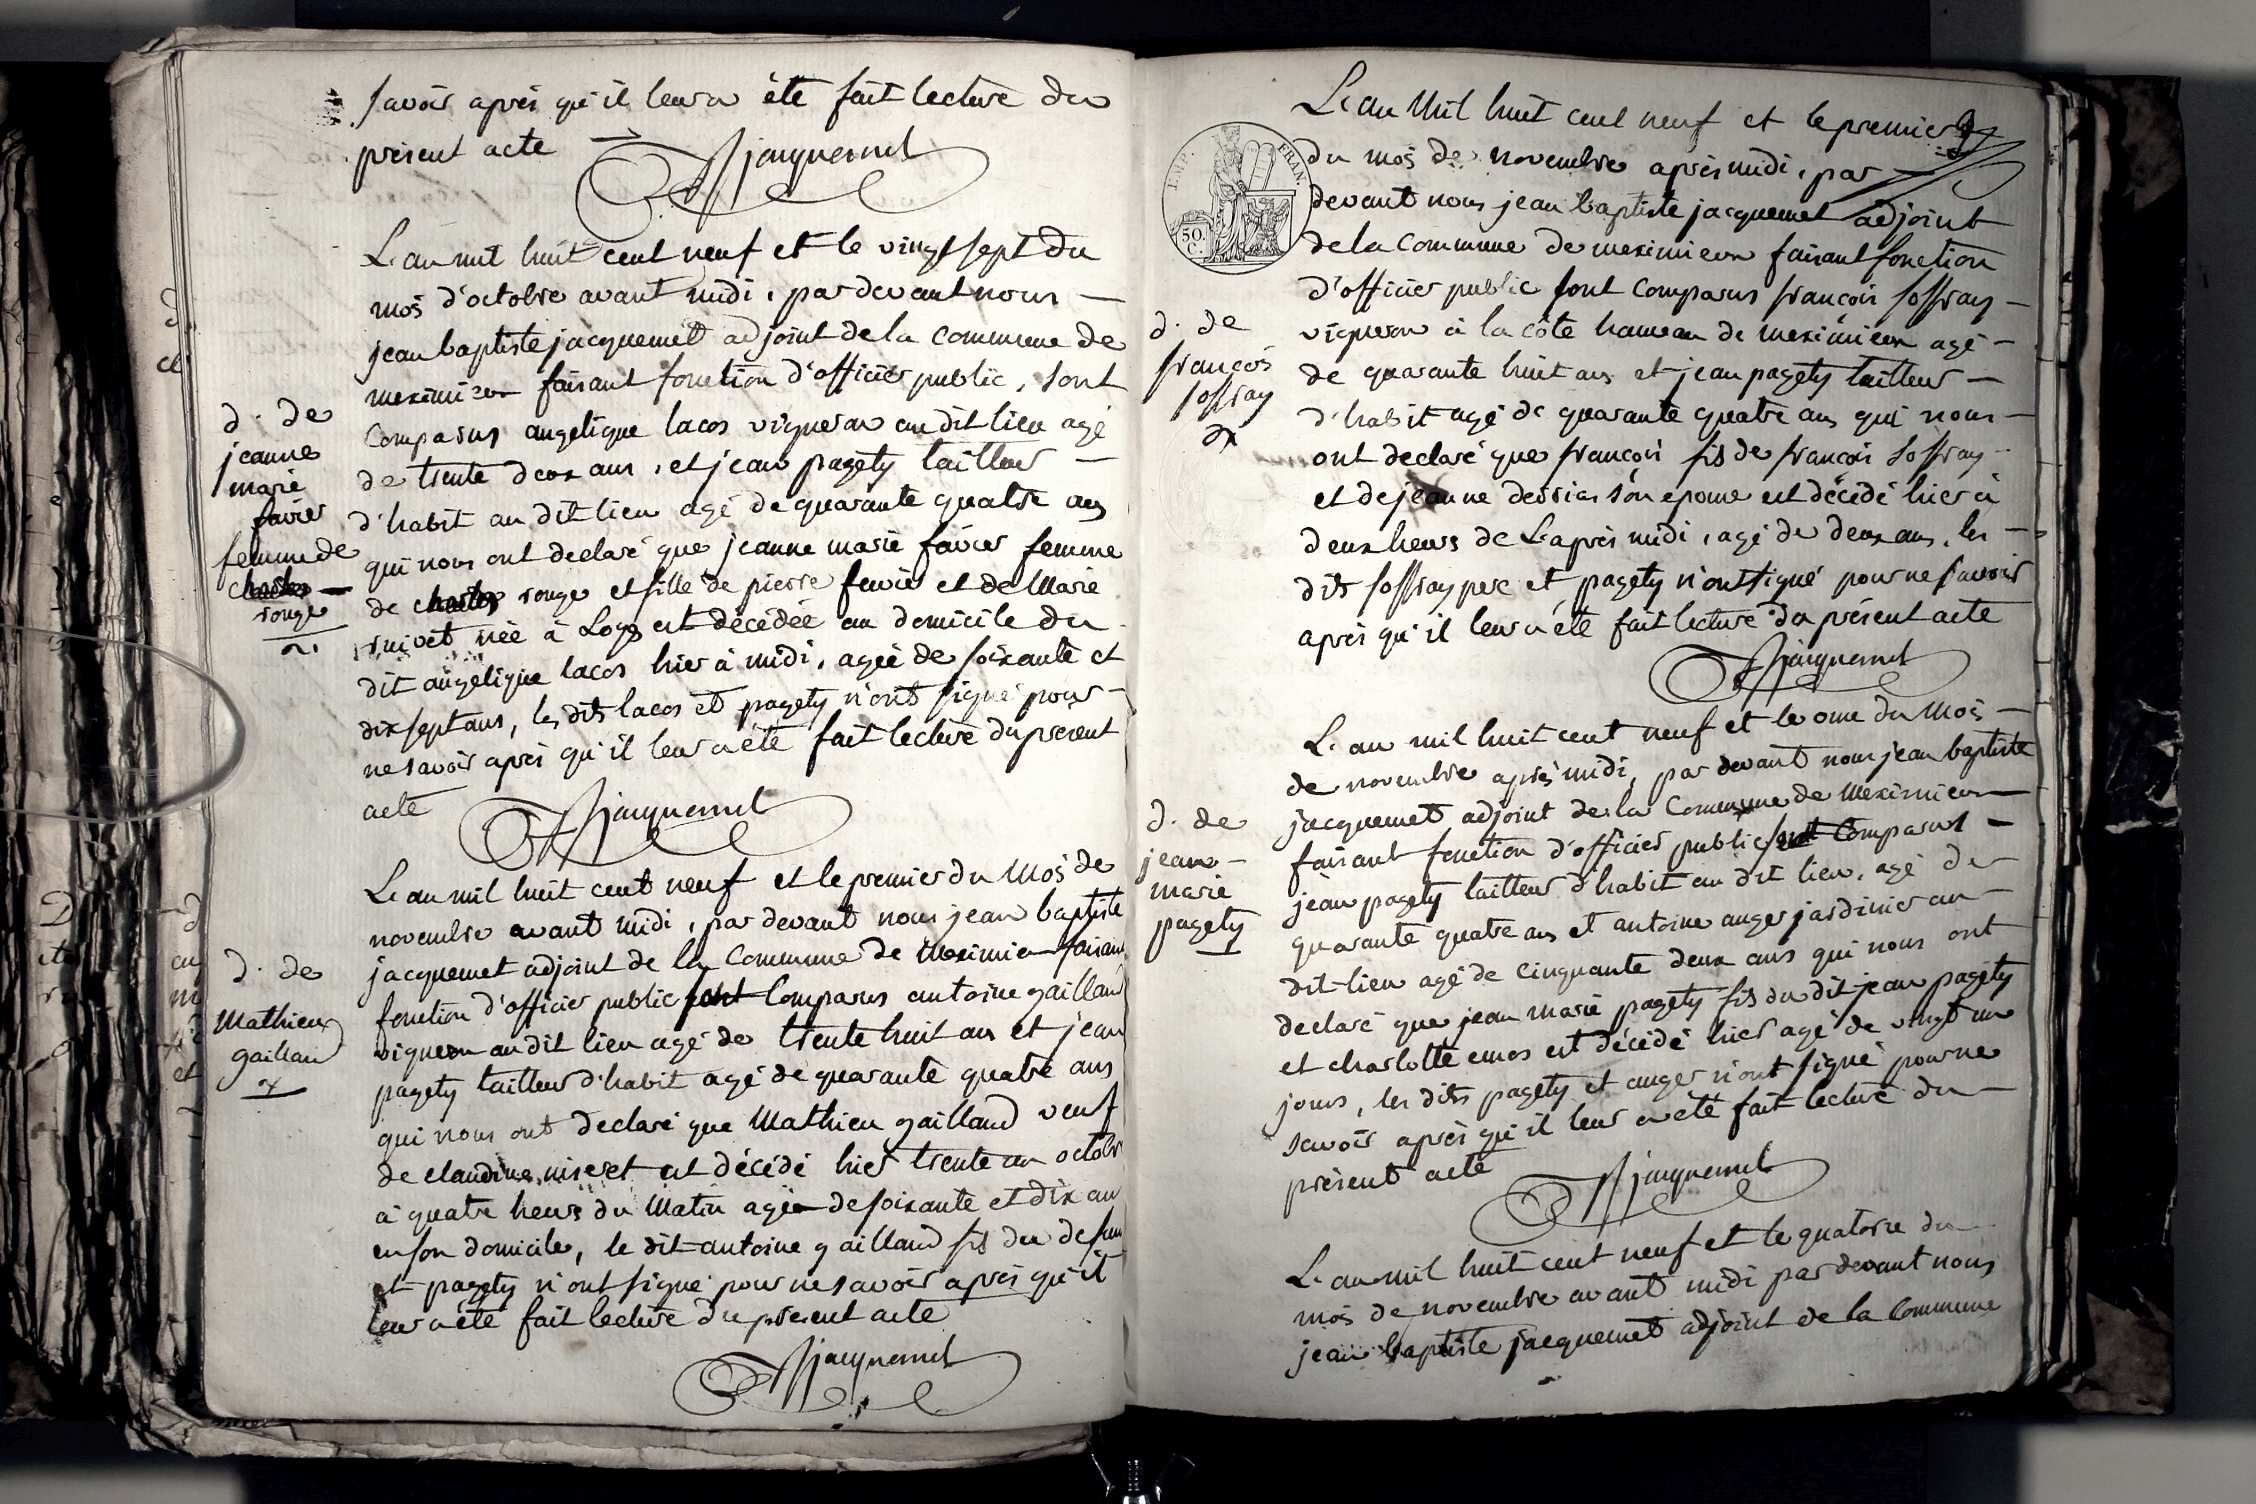 savoir après qu'il leur a été fait lecture du
présent acte
Jjacquemet
L'an mil huit cent neuf et le vingt sept du
mois d'octobre avant midi, par devant nous
jean baptiste jacquemet adjoint de la commune de
meximieux faisant fonction d'officier public, sont
comparus angelique lacos vigneron au dit lieu agé
de trente deux ans, et jean pagety tailleur
d'habit au dit lieu agé de quarante quatre ans
qui nous ont declaré que jeanne marie favier femme
de charles rouge et fille de pierre favier et de Marie
née à est décédée au domicile du
dit angelique lacos hier à midi, agée de soixante et
dix sept ans, les dits lacos et pagety n'ont signé pour
ne savoir après qu'il leur a été fait lecture du present
acte
Jjacquemet
d. de
jeanne
marie
favier
femme de
charles
rouge
L'an mil huit cent neuf et le premier du mois de
novembre avant midi, par devant nous jean baptiste
jacquemet adjoint de la commune de meximieux faisant
fonction d'officier public sont comparus antoine gailland
vigneron au dit lieu agé de trente huit ans et jean
pagety tailleur d'habit agé de quarante quatre ans
qui nous ont declaré que Mathieu gailland veuf
de claudine est décédé hier trente un octobre
à quatre heurs du Matin agée de soixante et dix an
en son domicile, le dit antoine gailland fils du defun
et pagety n'ont signé pour ne savoir après qu'il
leur a été fait lecture du present acte
Jjacquemet
d. de
Mathieu
gailland
L'an Mil huit cent neuf et le premier
du mois de novembre après midi, par
devant nous jean baptiste jacquemet adjoint
de la commune de meximieux faisant fonction
d'officier public sont comparus françois soffray
vigneron à la côte hameau de meximieux agé
de quarante huit ans et jean pagety tailleur
d'habit agé de quarante quatre ans qui nous
ont declaré que françois fils de françois soffray
et de jeanne son epouse est décédé hier à
deux heurs de L'après midi, agé de deux ans, les
dits soffray pere et pagety n'ont signé pour ne savoir
après qu'il leur a été fait lecture du présent acte
Jjacquemet
EMP. FRAN.
50 C.
d. de
françois
soffray
L'an mil huit cent neuf et le onze du Mois
de novembre après midi, par devant nous jean baptiste
jacquemet adjoint de la commune de Meximieux
faisant fonction d'officier public sont comparus
jean pagety tailleur d'habit au dit lieu, agé de
quarante quatre ans et antoine auger jardinier au
dit lieu agé de cinquante deux ans qui nous ont
declaré que jean marie pagety fils du dit jean pagety
et charlotte est décédé hier agé de vingt un
jours, les dits pagety et auger n'ont signé pour ne
savoir après qu'il leur a été fait lecture du
présent acte
Jjacquemet
d. de
jean
marie
pagety
L'an mil huit cent neuf et le quatorze du
mois de novembre avant midi par devant nous
jean baptiste jacquemet adjoint de la commune